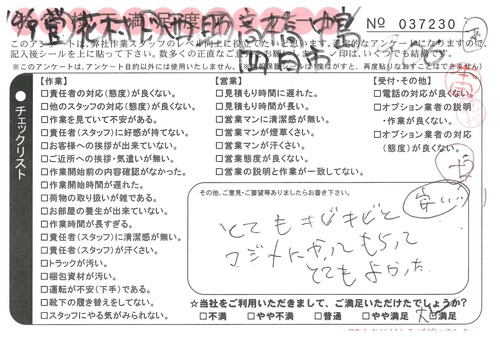 満足度
No 037230
このアンケートは、弊社作業スタッフのレベル向上に役立てたいと思います。
記入後シールを上に貼って下さい。数多くの正直なご意見が
いくつでも結構です。
※このアンケートは、アンケート目的以外には使用いたしません。
再度貼りなおすことはできません)
チェックリスト
【作業】
□責任者の対応(態度)が良くない。
□他のスタッフの対応(態度)が良くない。
□作業を見ていて不安がある。
□責任者(スタッフ)に好感が持てない。
□お客様への挨拶が出来ていない。
□ご近所への挨拶・気遣いが無い。
□作業開始前の内容確認がなかった。
□作業開始時間が遅れた。
□荷物の取り扱いが雑である。
□お部屋の養生が出来ていない。
□作業時間が長すぎる。
□責任者(スタッフ)に清潔感が無い。
□責任者(スタッフ)が汗くさい。
□トラックが汚い。
□梱包資材が汚い。
□運転が不安(下手)である。
□靴下の履き替えをしてない。
□スタッフにやる気がみられない。
【営業】
□見積もり時間に遅れた。
□見積もり時間が長い。
□営業マンに清潔感が無い。
□営業マンが煙草くさい。
□営業マンが汗くさい。
□営業態度が良くない。
□営業の説明と作業が一致してない。
【受付・その他】
□電話の対応が良くない。
□オプション業者の説明
・作業が良くない。
□オプション業者の対応
(態度)が良くない。
その他、ご意見・ご要望等ありましたらお書き下さい。
とてもキビキビと
マジメにやってもらって
とてもよかった
☆当社をご利用いただきまして、ご満足いただけたでしょうか?
□不満 □やや不満 □普通 □やや満足 大□満足